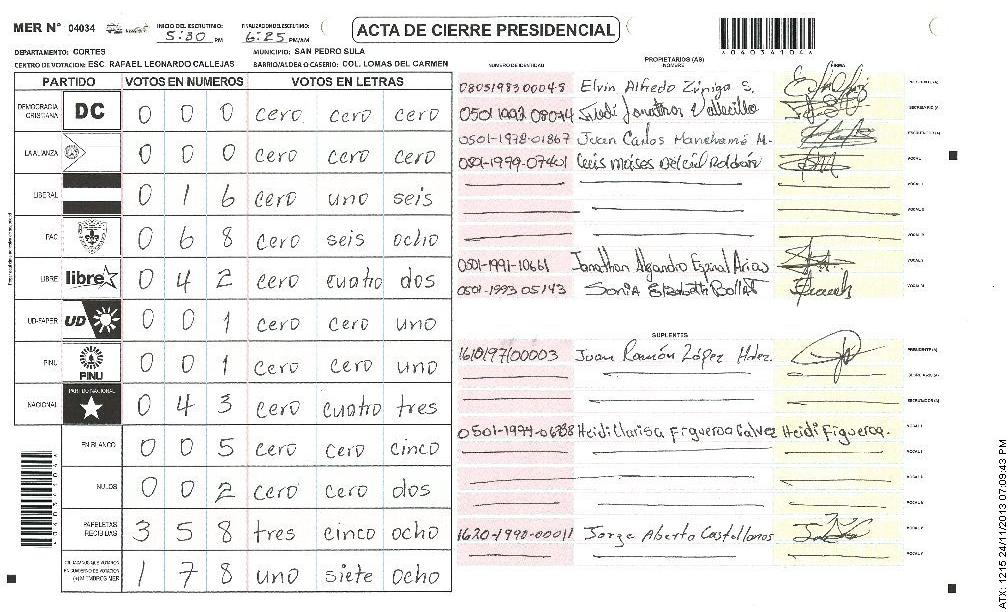 MER N° 04034
INICIO DEL ESCRUTINIO: 5:30 PM
FINALIZACION DEL ESCRUTINIO: 6:25 PM/AM
ACTA DE CIERRE PRESIDENCIAL
*04034104*
DEPARTAMENTO: CORTES
MUNICIPIO: SAN PEDRO SULA
CENTRO DE VOTACION: ESC. RAFAEL LEONARDO CALLEJAS
BARRIO/ALDEA O CASERIO: COL. LOMAS DEL CARMEN
PARTIDO VOTOS EN NUMEROS VOTOS EN LETRAS
DEMOCRACIA CRISTIANA DC 0 0 0 cero cero cero
LA ALIANZA 0 0 0 cero cero cero
LIBERAL 0 1 6 cero uno seis
PAC 0 6 8 cero seis ocho
LIBRE libre 0 4 2 cero cuatro dos
UD-FAPER UD 0 0 1 cero cero uno
PINU PINU 0 0 1 cero cero uno
NACIONAL PARTIDO NACIONAL 0 4 3 cero cuatro tres
EN BLANCO 0 0 5 cero cero cinco
NULOS 0 0 2 cero cero dos
PAPELETAS RECIBIDAS 3 5 8 tres cinco ocho
CIUDADANOS QUE VOTARON EN CUADERNO DE VOTACION (+) MIEMBROS MER 1 7 8 uno siete ocho
PROPIETARIOS (AS)
NUMERO DE IDENTIDAD NOMBRE FIRMA
0805198300048 Elvin Alfredo Zúniga S.
0501 1992 08074 Jonathan Vallecillo SECRETARIO (A)
0501-1978-01867 Juan Carlos Manchamé M. ESCRUTADOR (A)
0501-1999-07401 Luis Moises VOCAL I
VOCAL II
VOCAL III
VOCAL IV
0501-1991-10661 Jonathan Alejandro Espinal Arias VOCAL V
0501-1993 05143 Sonia Elizabeth VOCAL VI
SUPLENTES
1610197100003 Juan Ramón López Hdez. PRESIDENTE (A)
SECRETARIO (A)
ESCRUTADOR (A)
0501-1994-06388 Heidi Clarisa Figueroa Galvez Heidi Figueroa. VOCAL I
VOCAL II
VOCAL III
VOCAL IV
1620-1990-00011 Jorge Alberto Castellanos VOCAL V
VOCAL VI
ATX: 1215 24/11/2013 07:09:43 PM